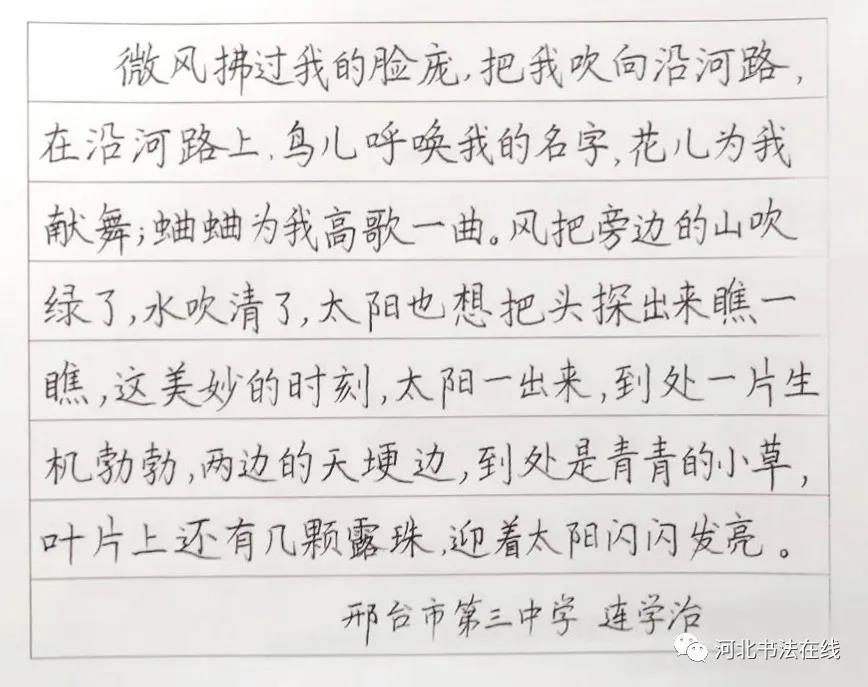 微风拂过我的脸庞,把我吹向沿河路,
在沿河路上,鸟儿呼唤我的名字,花儿为我
献舞;蛐蛐为我高歌一曲。风把旁边的山吹
绿了,水吹清了,太阳也想把头探出来瞧一
瞧,这美妙的时刻,太阳一出来,到处一片生
机勃勃,两边的天埂边,到处是青青的小草,
叶片上还有几颗露珠,迎着太阳闪闪发亮。
邢台市第三中学 连学治
河北书法在线